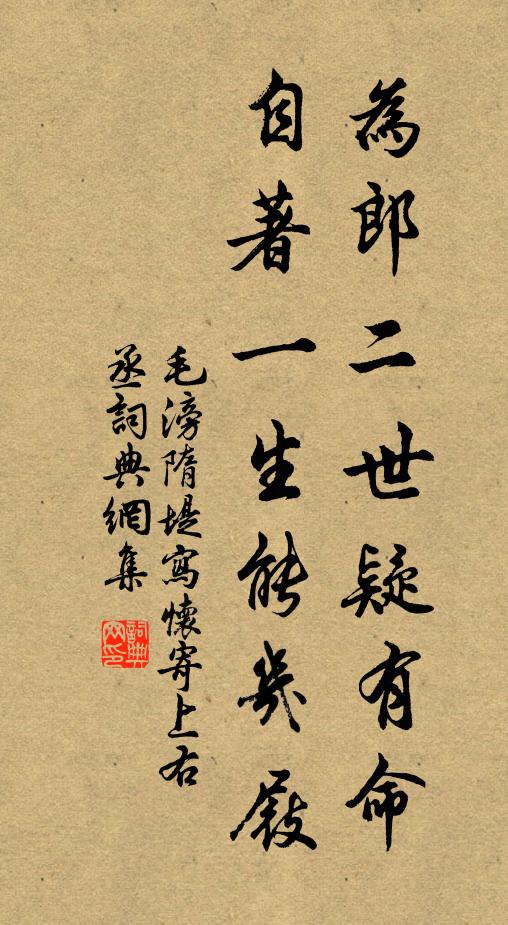 為郎二世疑有命
自著一生能幾屐
毛滂隋堤寫懷寄上右
丞詞典網集
詞典網印